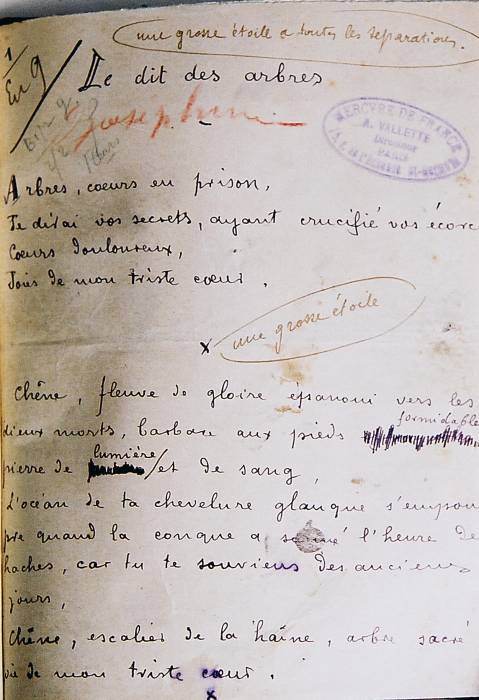 une grosse étoile a toutes les separations.
1
En 9
Le dit des arbres
MERCVRE DE FRANCE
A. VALLETTE
Directeur
PARIS
Arbres, coeurs en prison,
Je dirai vos secrets, ayant crucifié vos écorc
Coeurs douloureux,
Joies de mon triste coeur.
x
une grosse étoile
Chêne, fleuve de gloire épanoui vers les
dieux morts, barbare aux pieds
formidable
pierre de lumière / et de sang,
L'océan de ta chevelure glauque s'empour
pre quand la conque a sonné l'heure de
haches, car tu te souviens des anciens
jours,
Chêne, escalier de la haine, arbre sacré
oie de mon triste coeur.
x